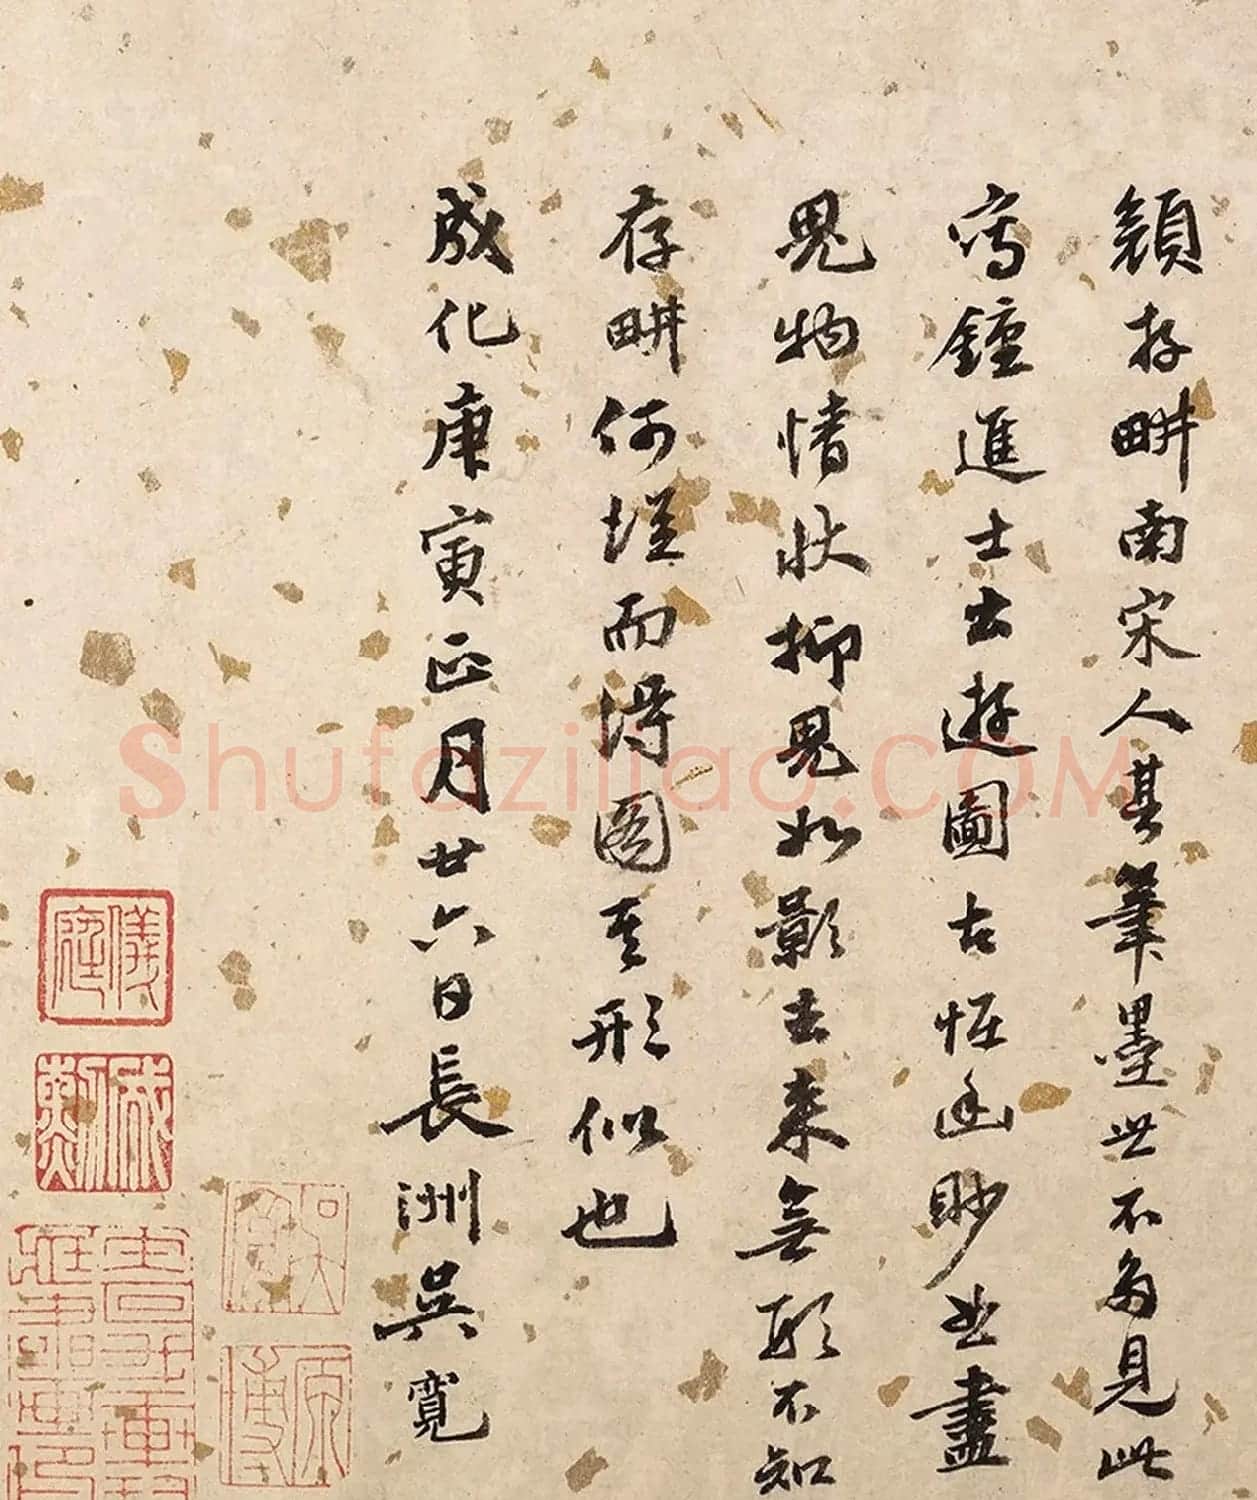 顏存畊南宋人其筆墨世不多見此
寫鍾進士出遊圖古恠幽眇出盡
鬼物情狀抑鬼如影去來無形不知
存畊何從而得圖其形似也
成化庚寅正月廿六日長洲吳寬
儀庭
吳寬
原博
shufaziliao.COM